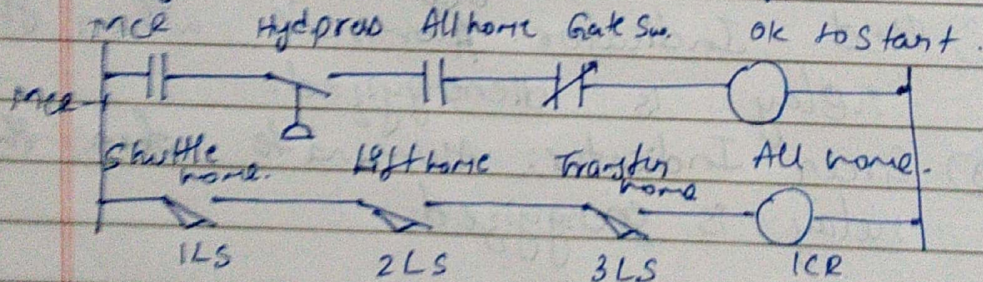 MCR Hydpress All home Gate Sw. Ok to Start.
MCR
Shuttle home. Lift home Transfer home All home.
1LS 2LS 3LS 1CR